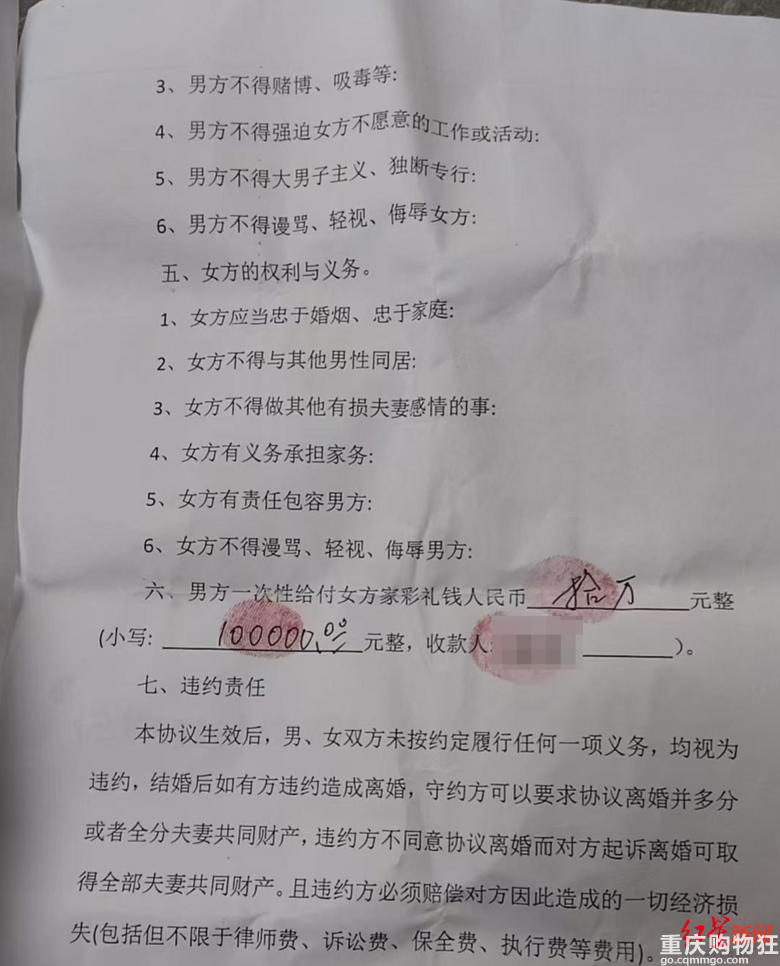 3、男方不得赌博、吸毒等:
4、男方不得强迫女方不愿意的工作或活动:
5、男方不得大男子主义、独断专行:
6、男方不得谩骂、轻视、侮辱女方:
五、女方的权利与义务。
1、女方应当忠于婚烟、忠于家庭:
2、女方不得与其他男性同居:
3、女方不得做其他有损夫妻感情的事:
4、女方有义务承担家务:
5、女方有责任包容男方:
6、女方不得漫骂、轻视、侮辱男方:
六、男方一次性给付女方家彩礼钱人民币 拾万 元整
(小写: 100000.00 元整，收款人: )。
七、违约责任
本协议生效后，男、女双方未按约定履行任何一项义务，均视为
违约，结婚后如有方违约造成离婚，守约方可以要求协议离婚并多分
或者全分夫妻共同财产，违约方不同意协议离婚而对方起诉离婚可取
得全部夫妻共同财产。且违约方必须赔偿对方因此造成的一切经济损
失(包括但不限于律师费、诉讼费、保全费、执行费等费用)。
红星新闻
重庆购物狂
go.cqnmgo.com